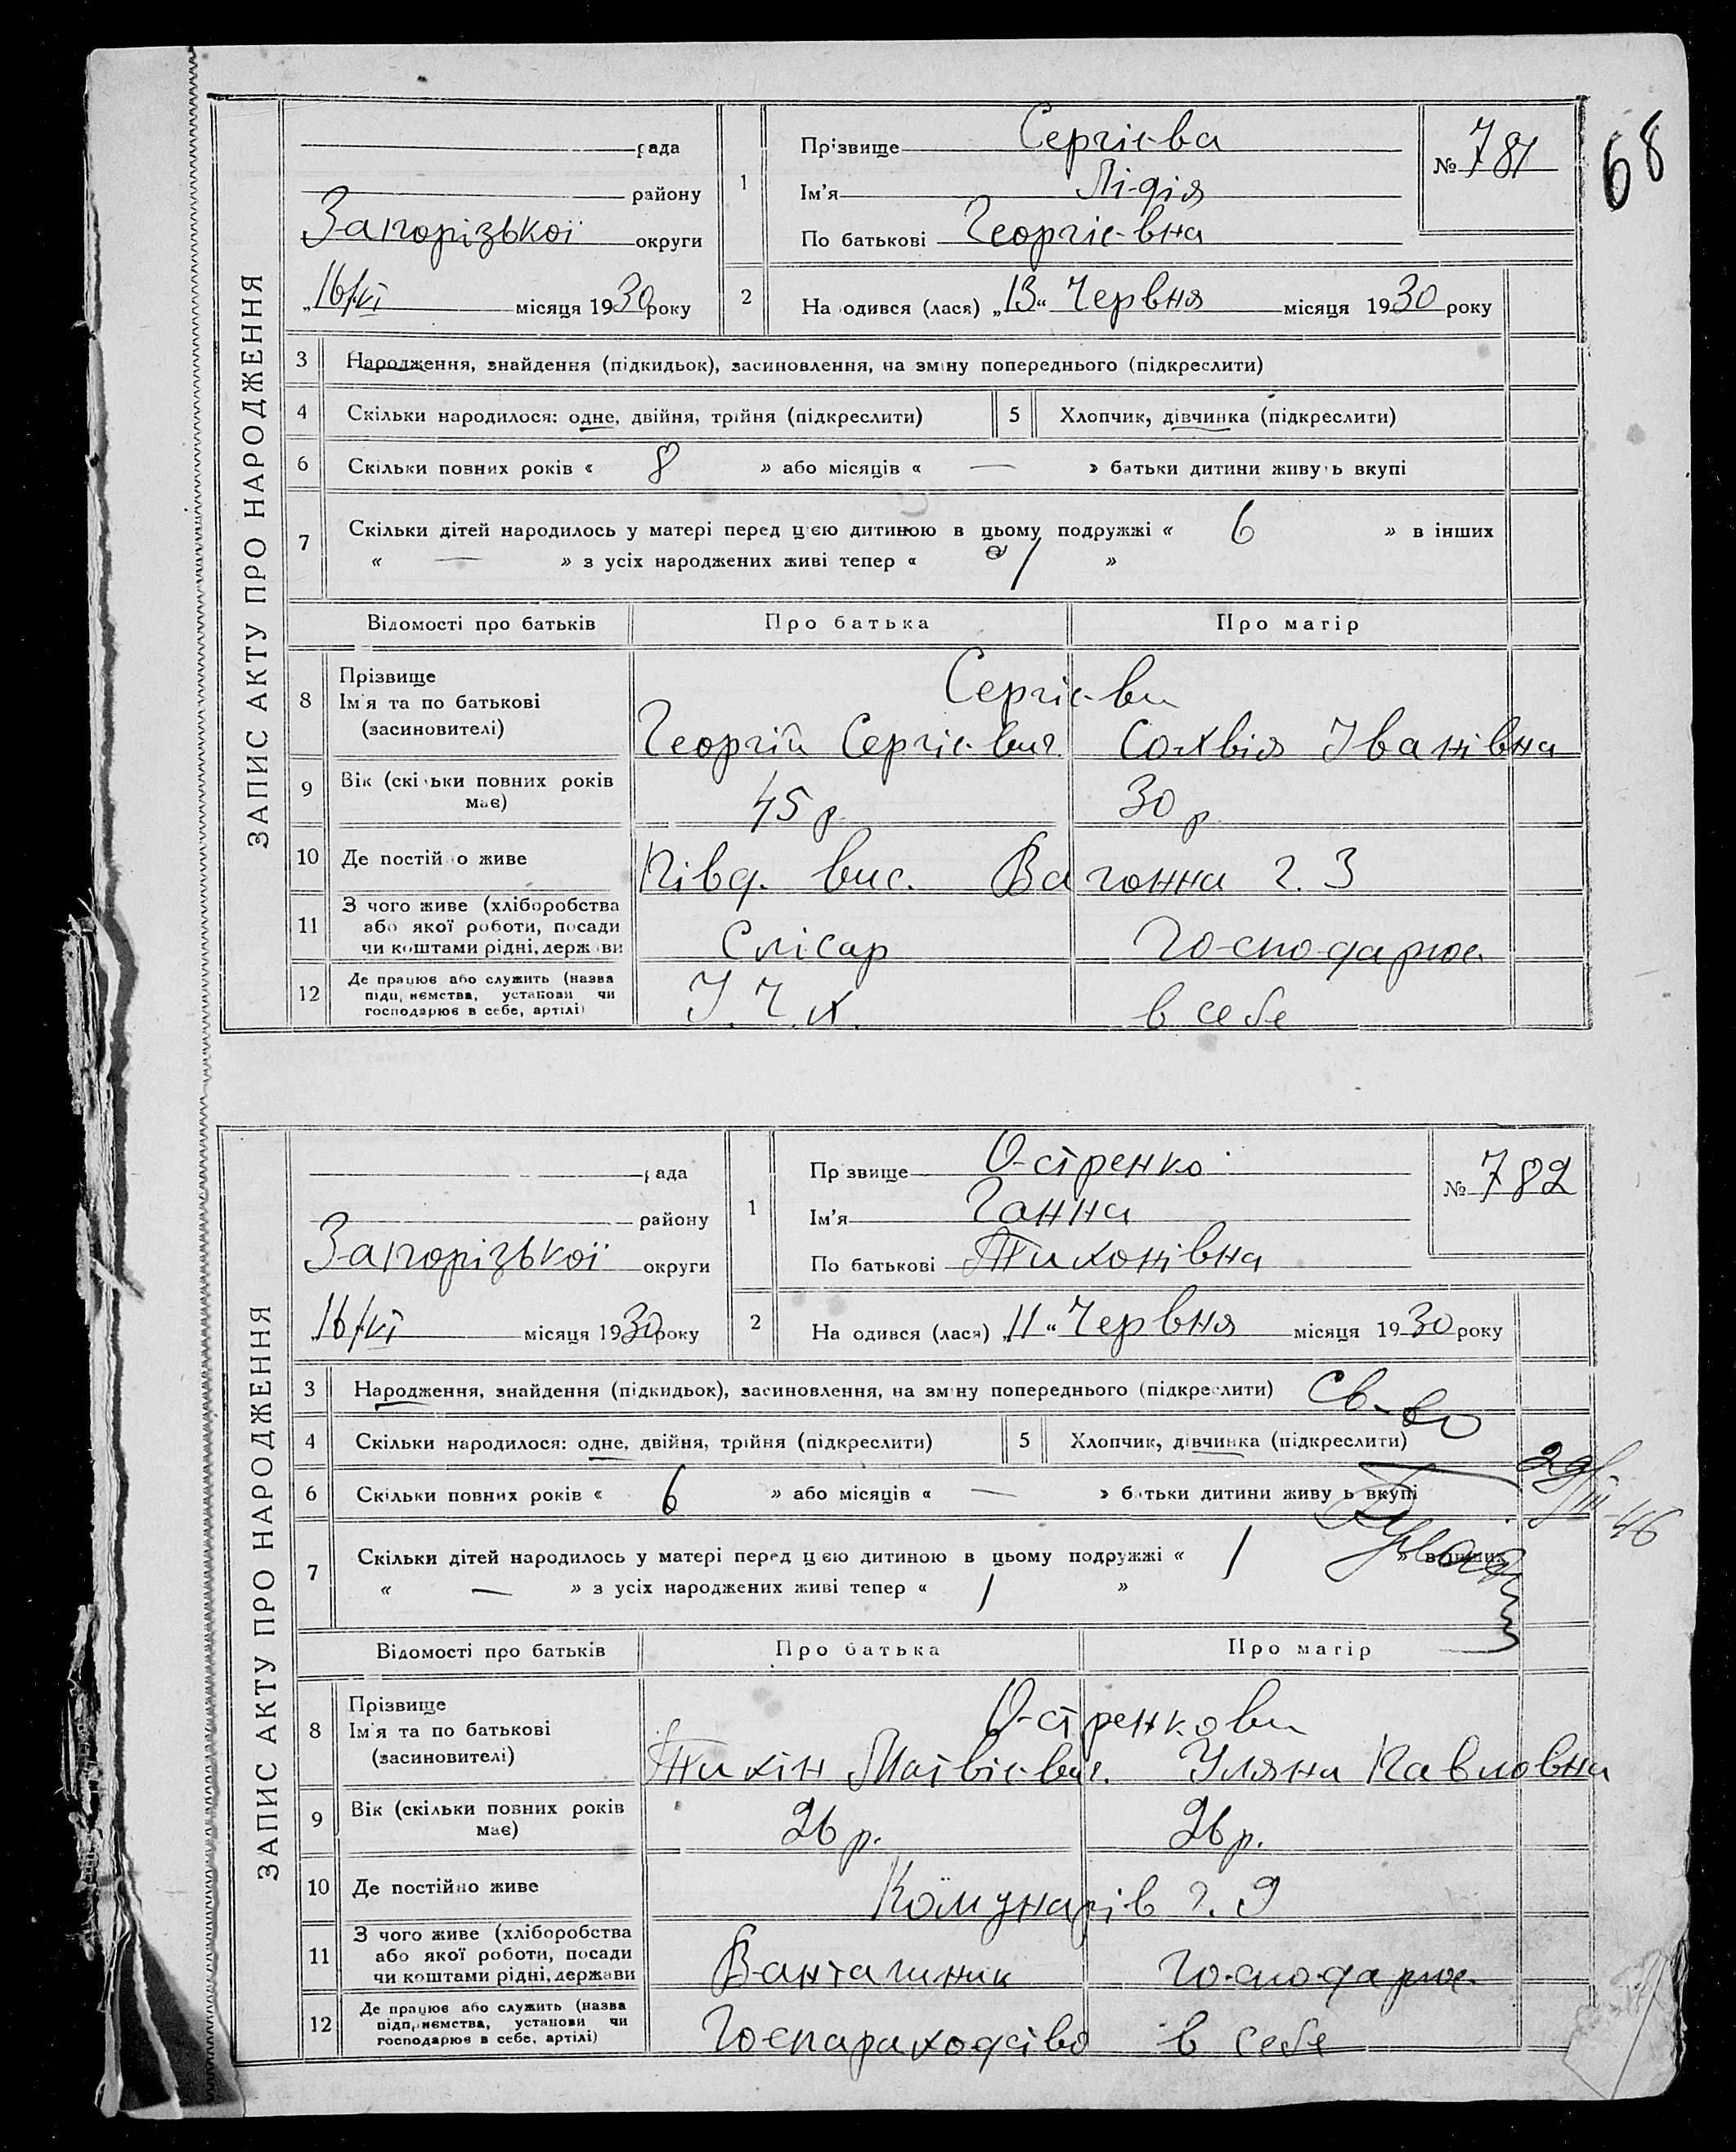 68
ЗАПИС АКТУ ПРО НАРОДЖЕННЯ
рада
району
Запорізької округи
„16/VI місяця 1930 року
1
Прізвище Сергієва
Ім'я Лідія
По батькові Георгієвна
№ 781
2
На одився (лася) „13“ Червня місяця 1930 року
3 Народження, знайдення (підкидьок), засиновлення, на зміну попереднього (підкреслити)
4 Скільки народилося: одне, двійня, трійня (підкреслити)
5 Хлопчик, дівчинка (підкреслити)
6 Скільки повних років « 8 » або місяців « — » батьки дитини живуть вкупі
7 Скільки дітей народилось у матері перед цією дитиною в цьому подружжі « 6 » в інших
« — » з усіх народжених живі тепер « 1 »
Відомості про батьків Про батька Про матір
8 Прізвище
Ім'я та по батькові
(засиновителі)
Сергієви
Георгій Сергієвич Софвія Іванівна
9 Вік (скільки повних років має) 45 р. 30 р.
10 Де постійно живе Півд. вис. Вагонна 2. 3
11 З чого живе (хліборобства
або якої роботи, посади
чи коштами рідні, держави
Слісар Господарює
12 Де працює або служить (назва
підприємства, установи чи
господарює в себе, артілі)
в себе
ЗАПИС АКТУ ПРО НАРОДЖЕННЯ
рада
району
Запорізької округи
„16/VI місяця 1930 року
1
Прізвище Остренко
Ім'я Ганна
По батькові Тихонівна
№ 782
2
На одився (лася) „11“ Червня місяця 1930 року
3 Народження, знайдення (підкидьок), засиновлення, на зміну попереднього (підкреслити) Св-во
4 Скільки народилося: одне, двійня, трійня (підкреслити)
5 Хлопчик, дівчинка (підкреслити)
29/III-46
6 Скільки повних років « 6 » або місяців « — » батьки дитини живуть вкупі
7 Скільки дітей народилось у матері перед цією дитиною в цьому подружжі « 1 » в інших
« — » з усіх народжених живі тепер « 1 »
Відомості про батьків Про батька Про матір
8 Прізвище
Ім'я та по батькові
(засиновителі)
Остренкови
Тихін Матвієвич. Уляна Павловна
9 Вік (скільки повних років має) 26 р. 26 р.
10 Де постійно живе Комунарів 2. 9
11 З чого живе (хліборобства
або якої роботи, посади
чи коштами рідні, держави
Вантажник Господарює
12 Де працює або служить (назва
підприємства, установи чи
господарює в себе, артілі)
Госпароходство в себе